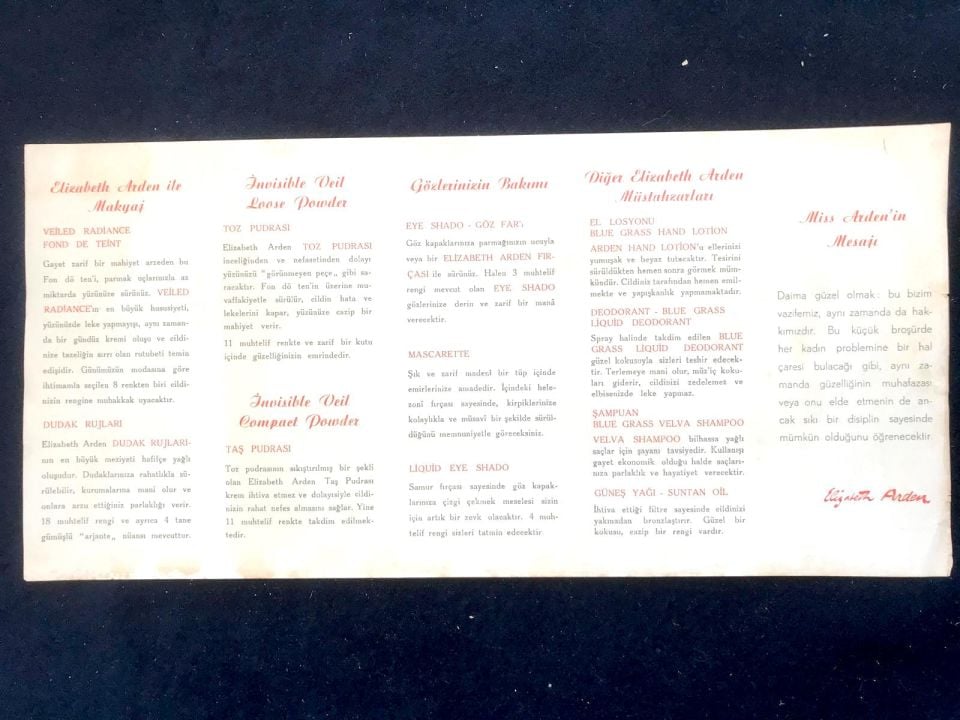 Elizabeth Arden ile
Makyaj
VEİLED RADİANCE
FOND DE TEİNT
Gayet zarif bir mahiyet arzeden bu
Fon dö ten'i, parmak uçlarınızla az
miktarda yüzünüze sürünüz. VEİLED
RADİANCE'ın en büyük hususiyeti,
yüzünüzde leke yapmayışı, aynı zaman-
da bir gündüz kremi oluşu ve cildi-
nize tazeliğin sırrı olan rutubeti temin
edişidir. Günümüzün modasına göre
ihtimamla seçilen 8 renkten biri cildi-
nizin rengine muhakkak uyacaktır.
DUDAK RUJLARI
Elizabeth Arden DUDAK RUJLARI-
nın en büyük meziyeti hafifçe yağlı
oluşudur. Dudaklarınıza rahatlıkla sü-
rülebilir, kurumalarına mani olur ve
onlara arzu ettiğiniz parlaklığı verir.
18 muhtelif rengi ve ayrıca 4 tane
gümüşlü "arjante„ nüansı mevcuttur.
İnvisible Veil
Loose Powder
TOZ PUDRASI
Elizabeth Arden TOZ PUDRASI
inceliğinden ve nefasetinden dolayı
yüzünüzü "görünmeyen peçe„ gibi sa-
racaktır. Fon dö ten'in üzerine mu-
vaffakiyetle sürülür, cildin hata ve
lekelerini kapar, yüzünüze cazip bir
mahiyet verir.
11 muhtelif renkte ve zarif bir kutu
içinde güzelliğinizin emrindedir.
İnvisible Veil
Compact Powder
TAŞ PUDRASI
Toz pudrasının sıkıştırılmış bir şekli
olan Elizabeth Arden Taş Pudrası
krem ihtiva etmez ve dolayısiyle cildi-
nizin rahat nefes almasını sağlar. Yine
11 muhtelif renkte takdim edilmek-
tedir.
Gözlerinizin Bakımı
EYE SHADO - GÖZ FAR'ı
Göz kapaklarınıza parmağınızın ucuyla
veya bir ELİZABETH ARDEN FIR-
ÇASI ile sürünüz. Halen 3 muhtelif
rengi mevcut olan EYE SHADO
gözlerinize derin ve zarif bir manâ
verecektir.
MASCARETTE
Şık ve zarif madenî bir tüp içinde
emirlerinize amadedir. İçindeki hele-
zonî fırçası sayesinde, kirpiklerinize
kolaylıkla ve müsavî bir şekilde sürül-
düğünü memnuniyetle göreceksiniz.
LİQUİD EYE SHADO
Samur fırçası sayesinde göz kapak-
larınıza çizgi çekmek meselesi sizin
için artık bir zevk olacaktır. 4 muh-
telif rengi sizleri tatmin edecektir
Diğer Elizabeth Arden
Müstahzarları
EL LOSYONU
BLUE GRASS HAND LOTİON
ARDEN HAND LOTİON'u ellerinizi
yumuşak ve beyaz tutacaktır. Tesirini
sürüldükten hemen sonra görmek müm-
kündür. Cildiniz tarafından hemen emil-
mekte ve yapışkanlık yapmamaktadır.
DEODORANT - BLUE GRASS
LİQUİD DEODORANT
Spray halinde takdim edilen BLUE
GRASS LİQUİD DEODORANT
güzel kokusuyla sizleri teshir edecek-
tir. Terlemeye mani olur, müz'iç koku-
ları giderir, cildinizi zedelemez ve
elbisenizde leke yapmaz.
ŞAMPUAN
BLUE GRASS VELVA SHAMPOO
VELVA SHAMPOO bilhassa yağlı
saçlar için şayanı tavsiyedir. Kullanışı
gayet ekonomik olduğu halde saçları-
nıza parlaklık ve hayatiyet verecektir.
GÜNEŞ YAĞI - SUNTAN OİL
İhtiva ettiği filtre sayesinde cildinizi
yakmadan bronzlaştırır. Güzel bir
kokusu, cazip bir rengi vardır.
Miss Arden'in
Mesajı
Daima güzel olmak: bu bizim
vazifemiz, aynı zamanda da hak-
kımızdır. Bu küçük broşürde
her kadın problemine bir hal
çaresi bulacağı gibi, aynı za-
manda güzelliğinin muhafazası
veya onu elde etmenin de an-
cak sıkı bir disiplin sayesinde
mümkün olduğunu öğrenecektir.
Elizabeth Arden